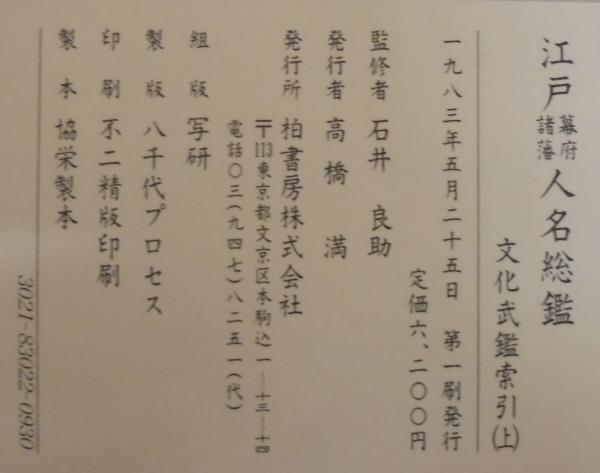 江戸幕府諸藩人名総鑑
文化武鑑索引(上)
一九八三年五月二十五日 第一刷発行
定価六、二〇〇円
監修者 石井 良助
発行者 高橋 満
発行所 柏書房株式会社
〒113東京都文京区本駒込一―十三―十四
電話〇三(九四七)八二五一(代)
組版 写研
製版 八千代プロセス
印刷 不二精版印刷
製本 協栄製本
3021-83022-0930